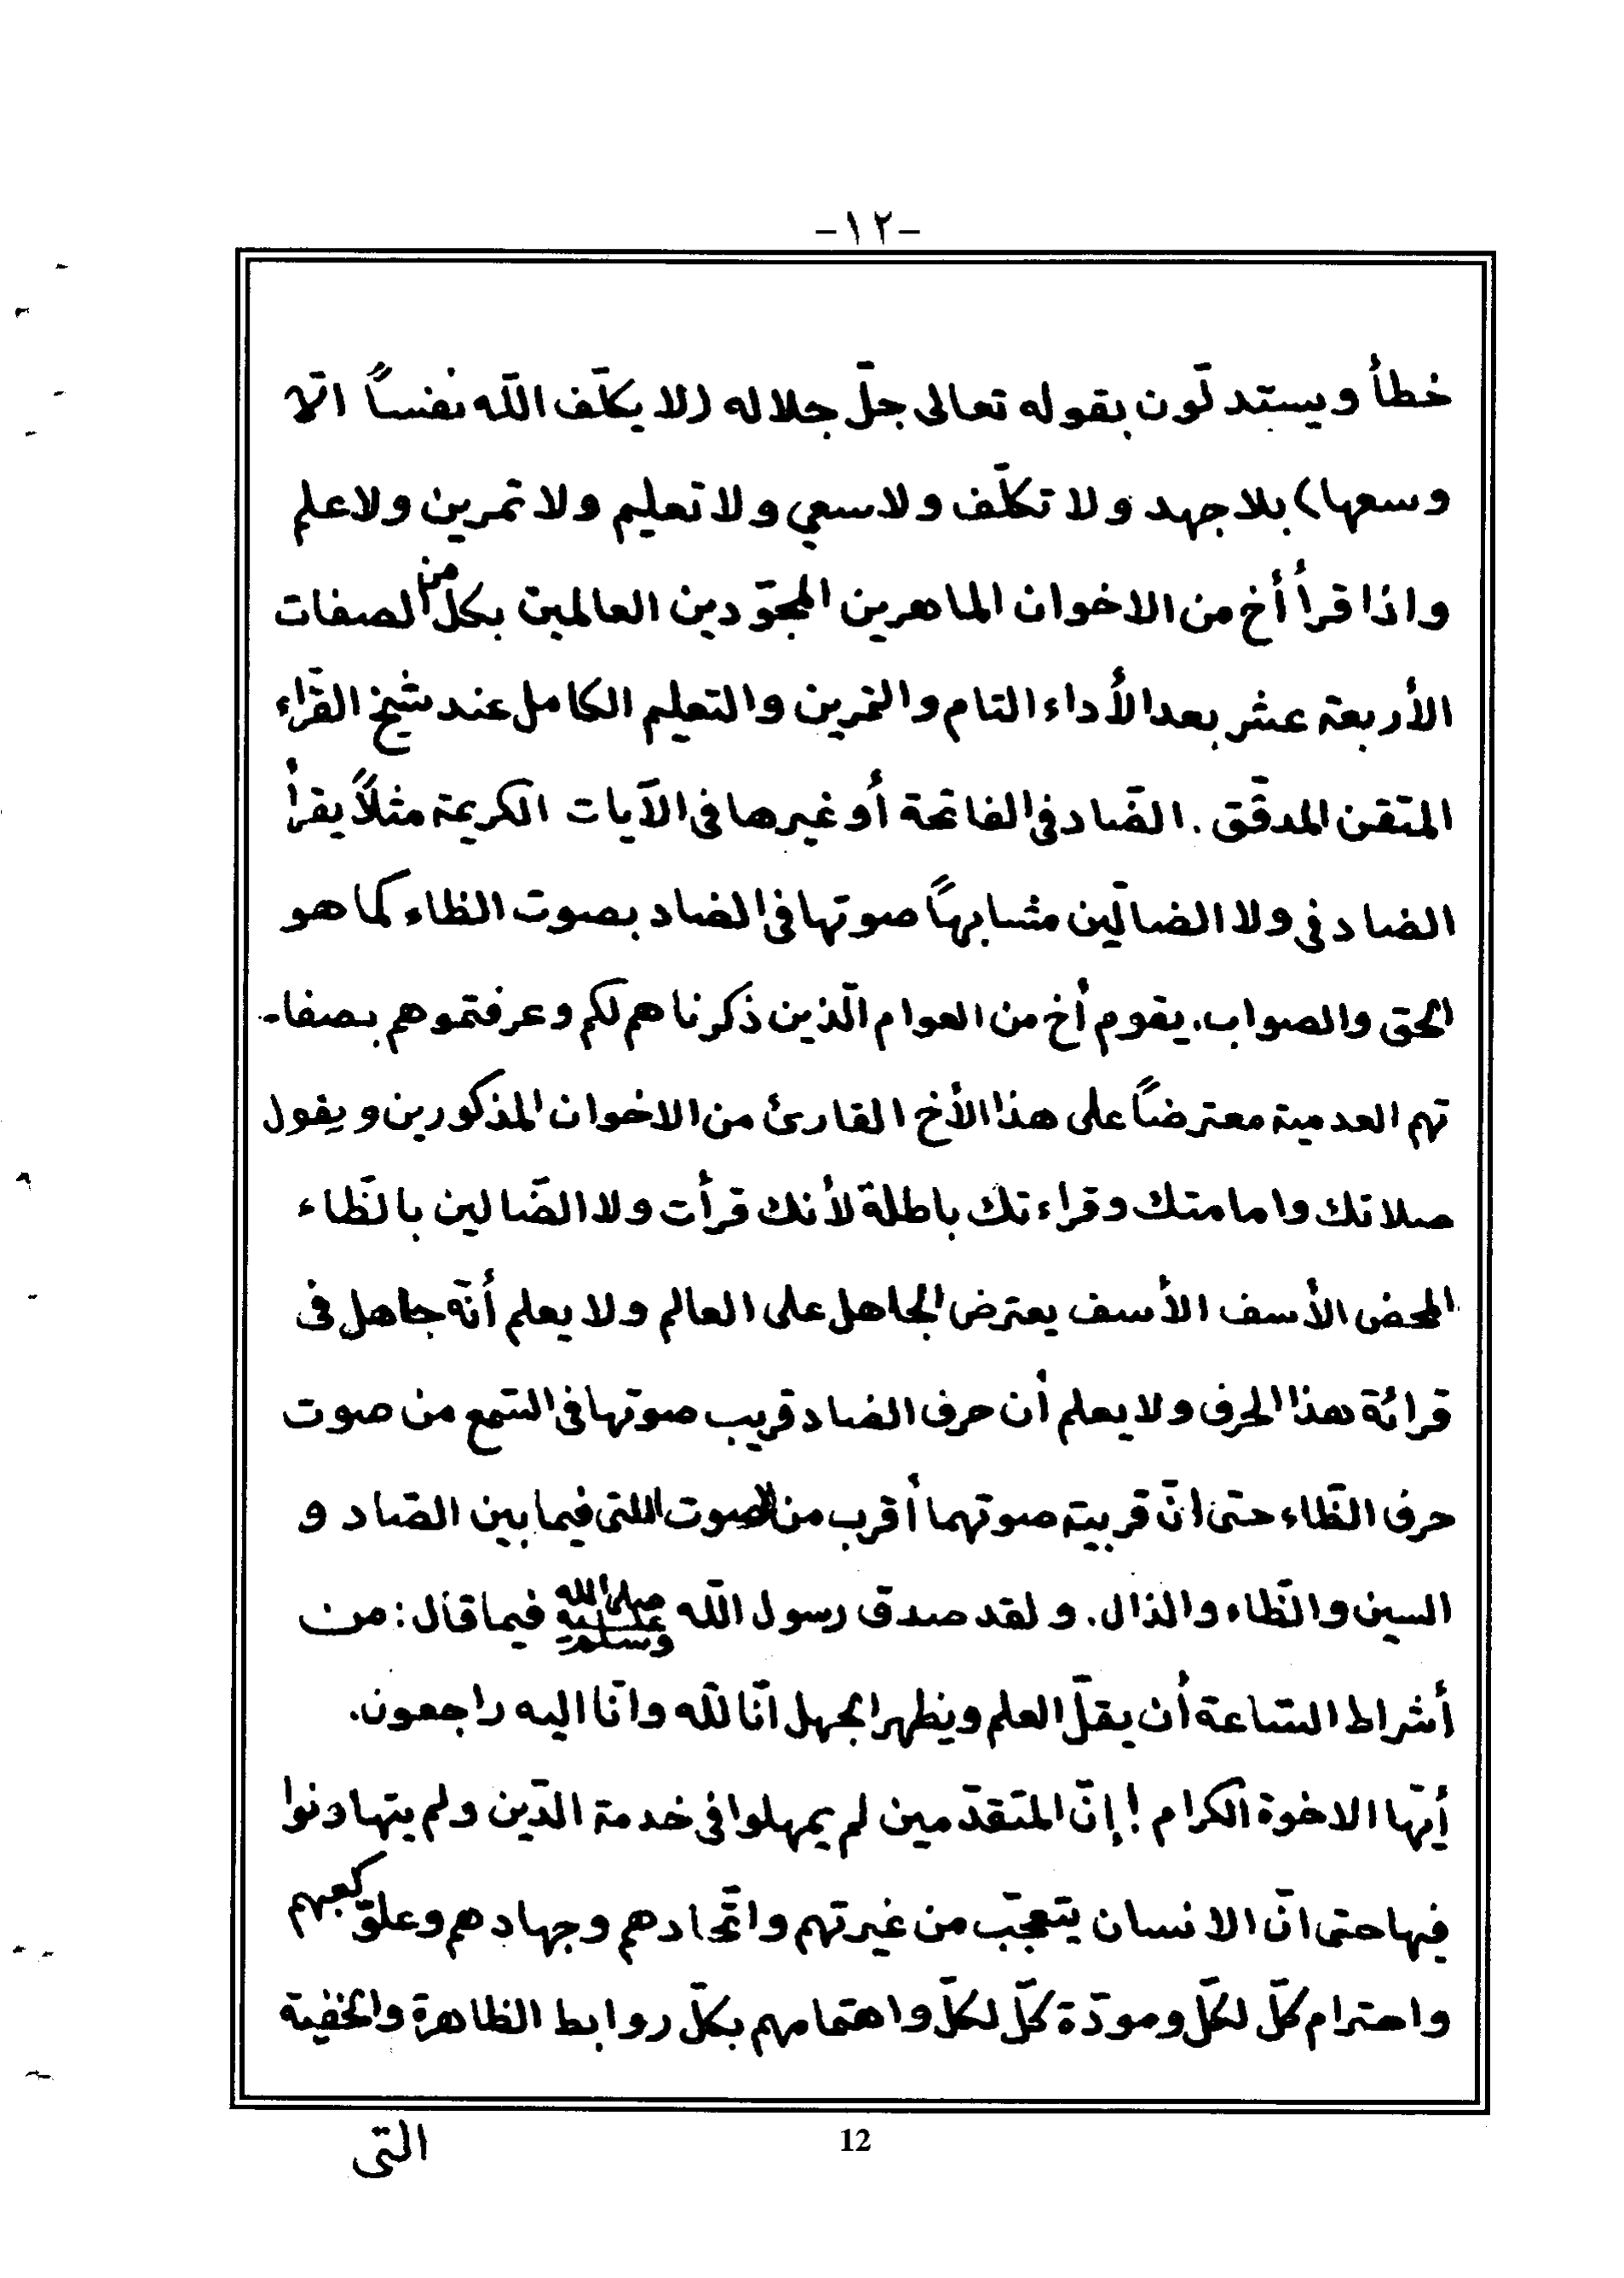 -١٢-
خطأ ويستدلّون بقوله تعالى جلّ جلاله (لا يكلّف اللّه نفساً الّا
وسعها) بلا جهد ولا تكلّف ولا سعي ولا تعليم ولا تمرين ولا علم
واذا قرأ أخ من الاخوان الماهرين المجوّدين العالمين بكل من الصفات
الأربعة عشر بعد الأداء التام والتمرين والتعليم الكامل عند شيخ القرّاء
المتقن المدقّق. الضّاد فى الفاتحة أو غيرها فى الآيات الكريمة مثلاً يقرأ
الضاد فى ولا الضالّين مشابهاً صوتها فى الضاد بصوت الظاء كما هو
الحق والصواب. يقوم أخ من العوام الّذين ذكرناهم لكم وعرفتموهم بصفا-
تهم العدمية معترضاً على هذا الأخ القارئ من الاخوان المذكورين ويقول
صلاتك وامامتك وقراءتك باطلة لأنك قرأت ولا الضّالين بالظّاء
المحض الأسف الأسف يعترض الجاهل على العالم ولا يعلم أنّه جاهل فى
قرائة هذا الحرف ولا يعلم أن حرف الضاد قريب صوتها فى السّمع من صوت
حرف الظّاء حتى انّ قربية صوتهما أقرب من الصوت اللتى فيما بين الضّاد و
السين والظّاء والذال. ولقد صدق رسول اللّه صلى الله عليه وسلم فيما قال: من
أشراط السّاعة أن يقلّ العلم ويظهر الجهل انّا للّه وانّا اليه راجعون.
أيّها الاخوة الكرام! إنّ المتقدّمين لم يمهلوا فى خدمة الدّين ولم يتهاونوا
فيها حتى انّ الانسان يتعجّب من غيرتهم واتّحادهم وجهادهم وعلوّ كعبهم
واحترام كلّ لكلّ ومودّة كلّ لكلّ واهتمامهم بكلّ روابط الظاهرة والخفية
12
التى